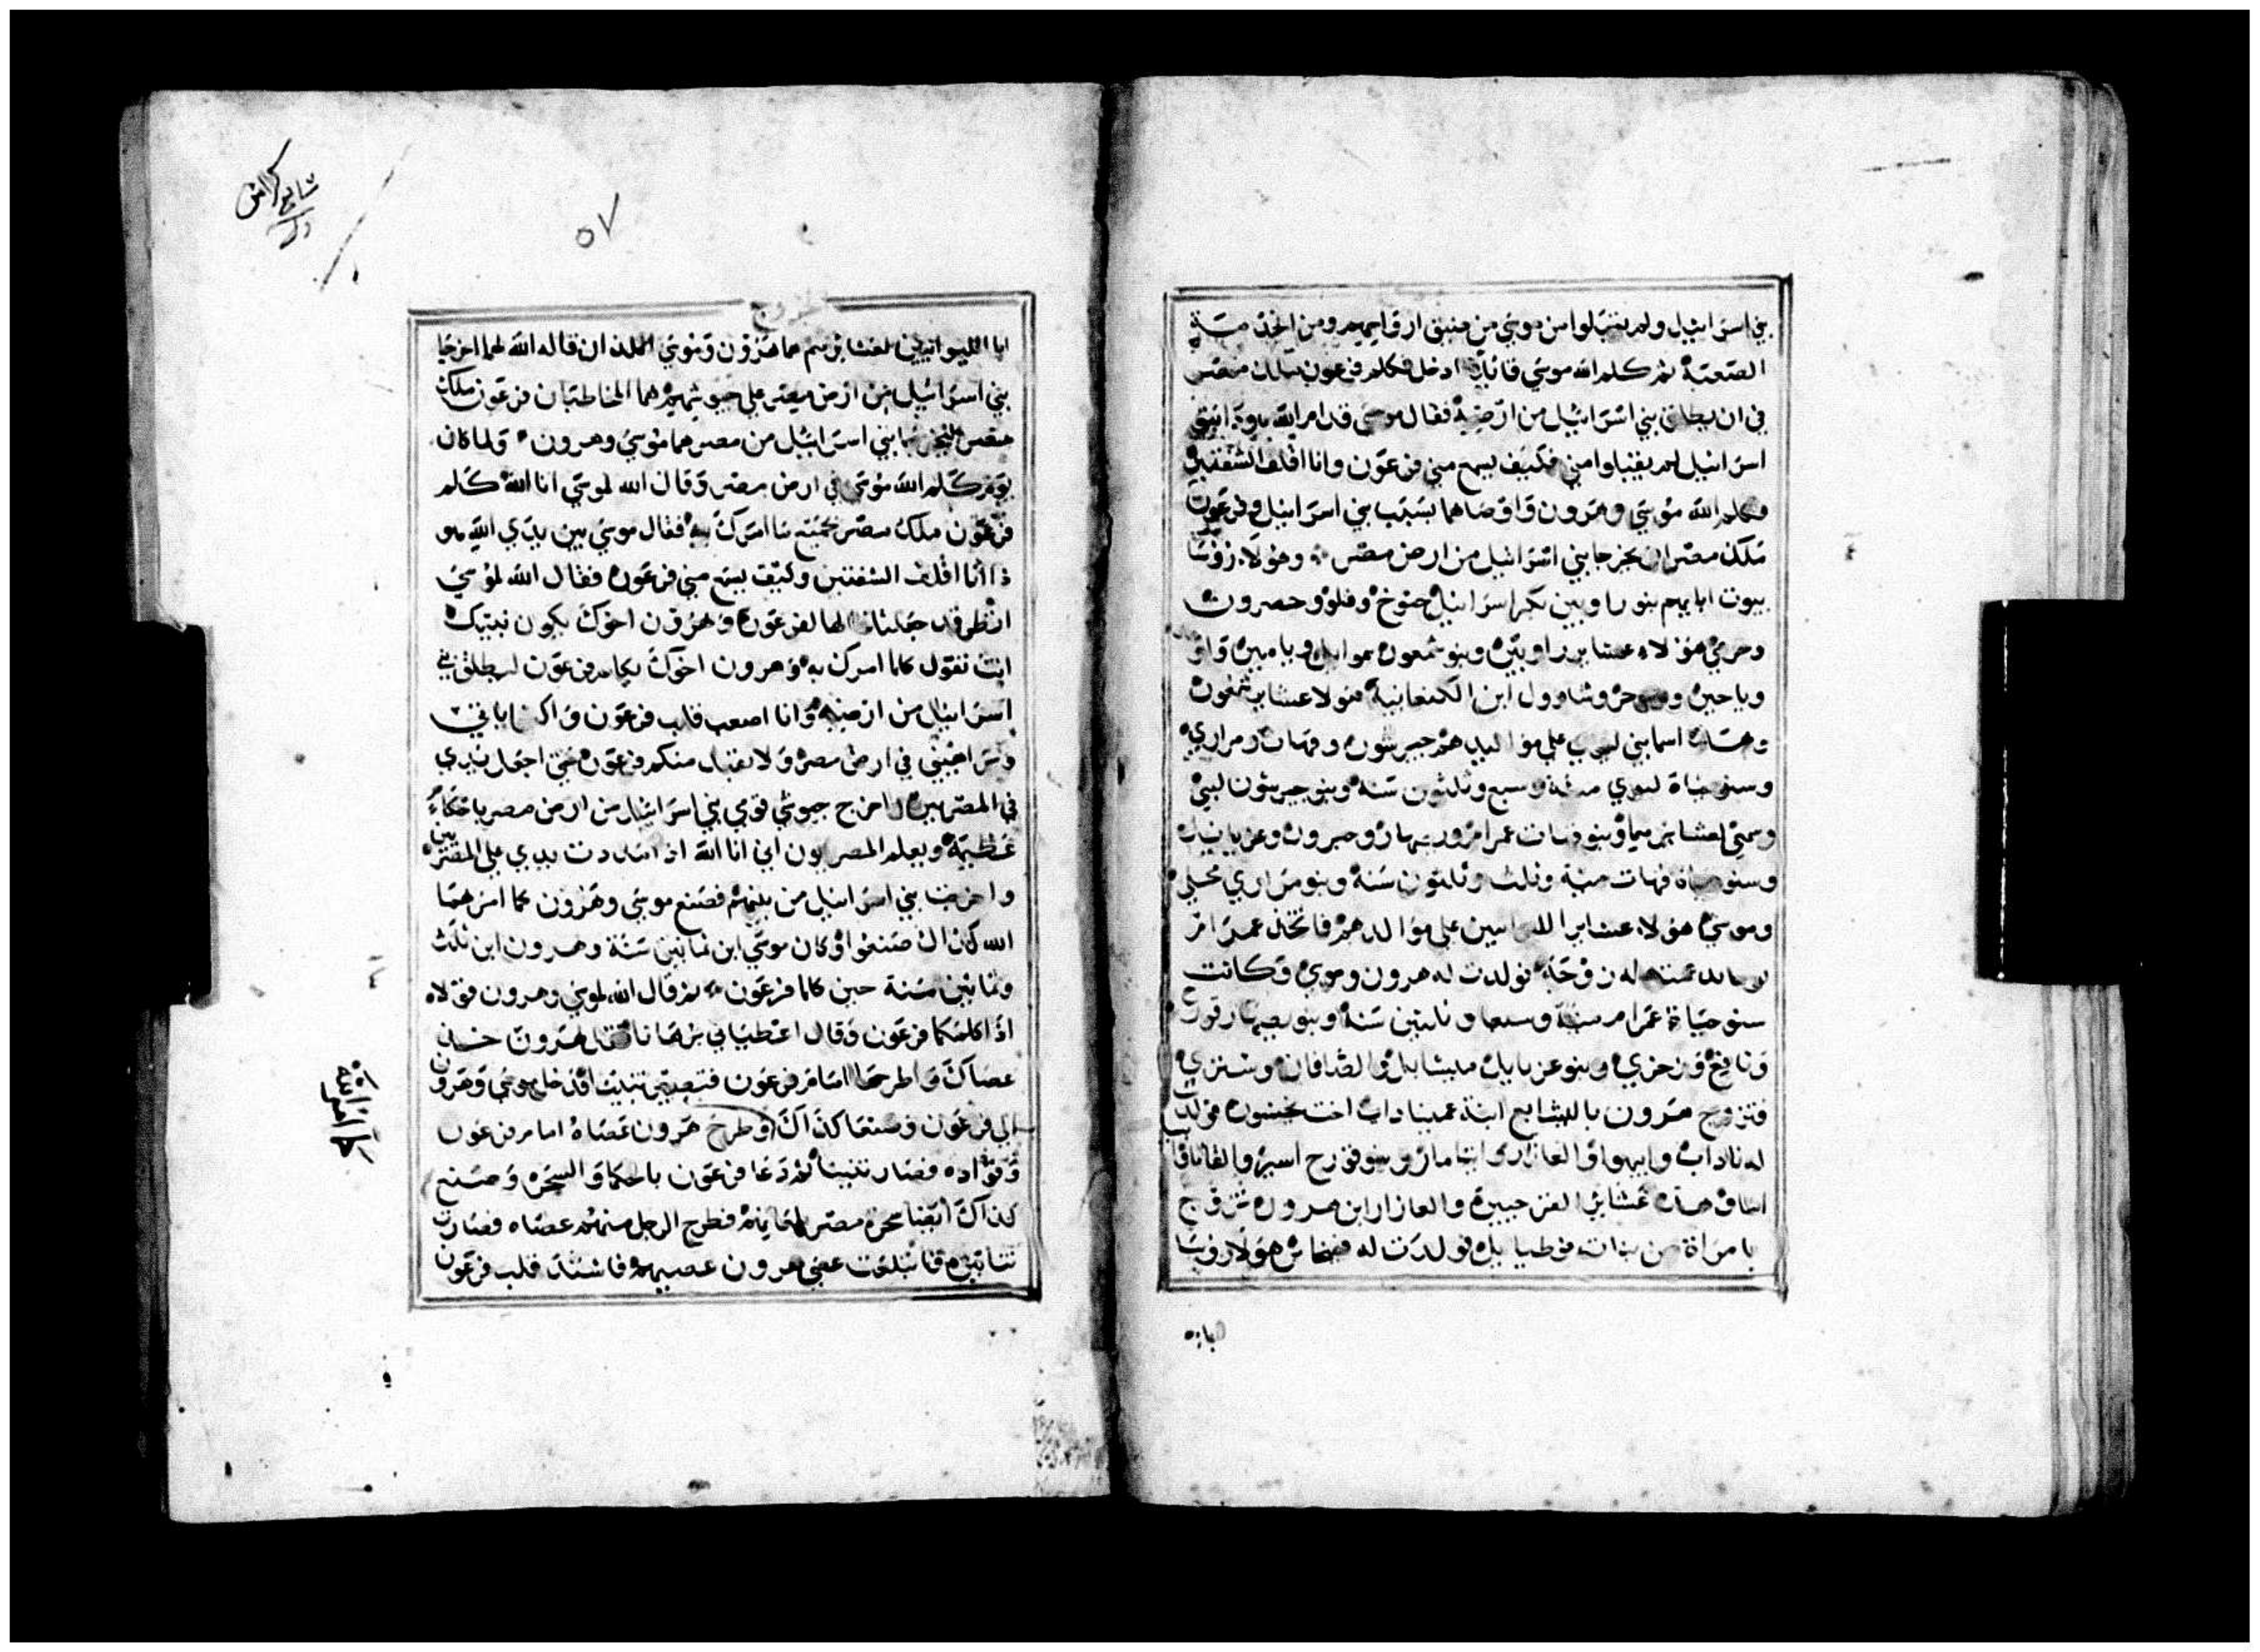 بني اسرائيل ولم يقبلوا من موسي من ضيق ارواحهم ومن الخدمة
الصعبة ثم كلم الله موسي قائلا ادخل فكلم فرعون ملك مصر
في ان يطلق بني اسرائيل من ارضه فقال موسي قدام الله هوذا بني
اسرائيل لم يقبلوا مني فكيف يسمع مني فرعون وانا اقلف الشفتين
فكلم الله موسي وهرون واوصاهما بسبب بني اسرائيل وفرعون
ملك مصر ان يخرجا بني اسرائيل من ارض مصر وهولا روسا
بيوت ابايهم بنو راوبين بكر اسرائيل حنوخ وفلو وحصرون
وحرمي هولاء عشاير راوبين وبنو شمعون يموايل ويامين
وياخين وشاوول ابن الكنعانية هولا عشاير شمعون
وهذه اسما بني ليوي علي مواليدهم جيرشون وقهات ومراري
وسنو حياة ليوي مئة وسبع وثلثون سنة وبنو جيرشون لبني
وسمعي لعشايرهما وبنو قهات عمرام ويصهار وحبرون وعزيائيل
وسنو حياة قهات مية وثلث وثلثون سنة وبنو مراري محلي
وموسي هولاء عشاير الليوانيين علي مواليدهم فاتخذ عمرام
عمته له زوجة فولدت له هرون وموسي وكانت
سنو حياة عمرام مية وسبعا وثلثين سنة وبنو يصهار قورح
ونافغ وزخري وبنو عزيائيل ميشايل والصافان وستري
فتزوج هرون باليشابع ابنة عميناداب اخت نحشون فولدت
له ناداب وابيهو والعازار وايثامار وبنو قورح اسير والقانا
هذه عشاير القرحيين والعازار ابن هرون تزوج
بامراة من بنات فوطيايل فولدت له فينحاس هولا روسا
ابا
شابع كراس
٥٧
الخروج
ابا الليوانيين لعشايرهم هما هرون وموسي اللذان قال الله لهما اخرجا
بني اسرائيل من ارض مصر علي جيوشهم هما المخاطبان فرعون ملك
مصر ليخرجا بني اسرائيل من مصر هما موسي وهرون ولما كان
يوم كلم الله موسي في ارض مصر وقال الله لموسي انا الله كلم
فرعون ملك مصر بجميع ما امرك به فقال موسي بين يدي الله هو
ذا انا اقلف الشفتين وكيف يسمع مني فرعون فقال الله لموسي
انظر قد جعلتك الها لفرعون وهرون اخوك يكون نبيك
انت تقول كلما امرك به وهرون اخوك يكلم فرعون ليطلق بني
اسرائيل من ارضه وانا اصعب قلب فرعون واكثر اياتي
وبراهيني في ارض مصر ولا يقبل منكم فرعون حتي اجعل يدي
في المصريين واخرج جيوشي قومي بني اسرائيل من ارض مصر باحكام
عظيمة ويعلم المصريون اني انا الله اذا مددت يدي علي المصريين
واخرجت بني اسرائيل من بينهم فصنع موسي وهرون كما امرهما
الله كذلك صنعوا وكان موسي ابن ثمانين سنة وهرون ابن ثلث
وثمانين سنة حين كلما فرعون ثم قال الله لموسي وهرون قولاه
اذا كلمكما فرعون وقال اعطياني برهانا فقل لهرون خذ
عصاك واطرحها امام فرعون فتصير تنينا فدخل موسي وهرون
الي فرعون وصنعا كذلك وطرح هرون عصاه امام فرعون
وقواده فصار تنينا ثم دعا فرعون بالحكما والسحرة وصنع
كذلك ايضا سحرة مصر فطرح الرجل منهم عصاه فصارت
تنانين فابتلعت عصي هرون عصيهم فاشتد قلب فرعون
كما امر الله